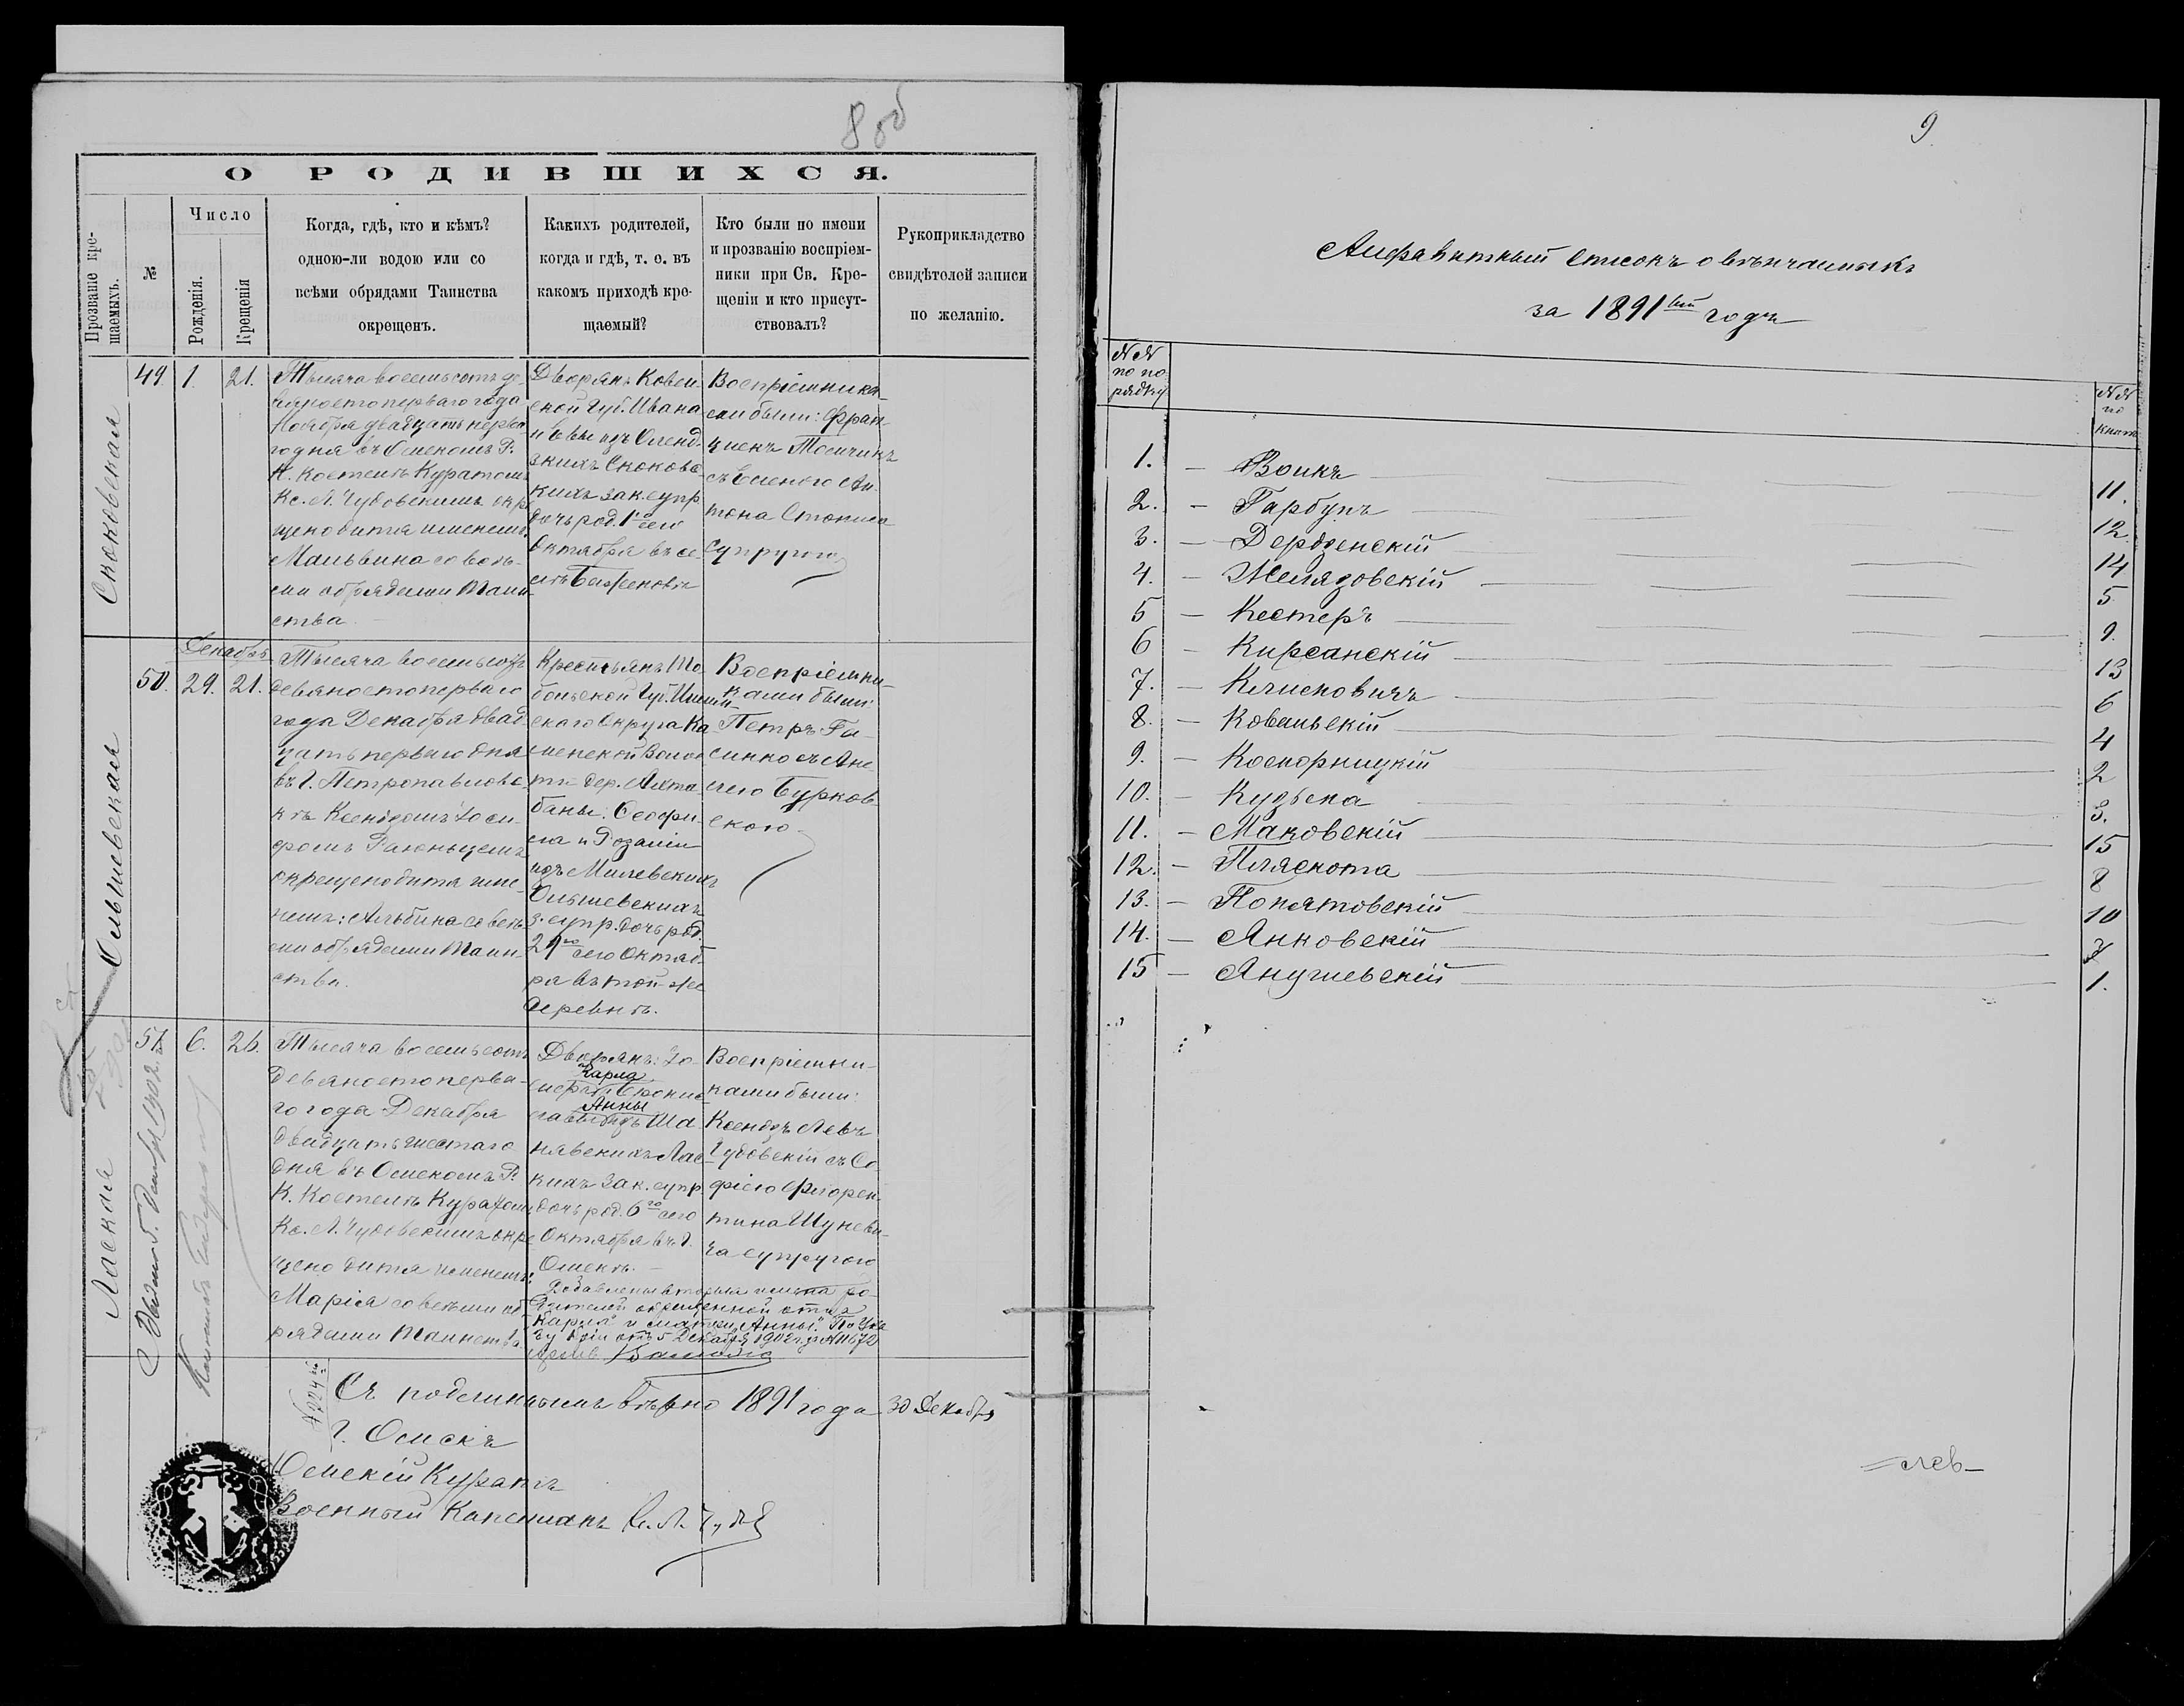 8 об
О РОДИВШИХСЯ.
Прозваніе кре-
щаемыхъ.
№
Число
Рожденія.
Крещенія
Когда, гдѣ, кто и кѣмъ?
одною-ли водою или со
всѣми обрядами Таинства
окрещенъ.
Какихъ родителей,
когда и гдѣ, т. е. въ
какомъ приходѣ кре-
щаемый?
Кто были по имени
и прозванію воспріем-
ники при Св. Кре-
щеніи и кто присут-
ствовалъ?
Рукоприкладство
свидѣтелей записи
по желанію.
Скоковская
49. 1. 21.
Тысяча восемьсотъ де-
вяностоперваго года
Ноября двадцать перва
го дня въ Омскомъ Р.
К. Костелѣ Куратомъ
Кс. Л. Чудовскимъ окр
щено дитя именемъ:
Мальвина со всѣ-
ми обрядами Таин-
ства.
Дворянъ Ковен
ской Губ. Ивана
и Евы изъ
Скоковс-
кихъ зак. супр
дочь род. 1го сего
Октября въ се-
лѣ
Воспріемника-
ми были: Фран-
цискъ
съ Еленою Ан-
тона
супругою
Ольшевская
Декабрь
50. 29. 21.
Тысяча восемьсотъ
девяностоперваго
года Декабря двад-
цать перваго дня
въ Г. Петропавловс-
кѣ Ксендзомъ Іоси-
фомъ
окрещено дитя име-
немъ: Альбина со всѣ-
ми обрядами Таин-
ства.
Крестьянъ То-
больской Губ. Ишим-
скаго Округа Ка-
менской Волос
ти дер.
баны: Ѳеофи-
ла и Розаліи
изъ Милевскихъ
Ольшевскихъ
з. супр. дочь род.
29го сего Октяб-
ря въ той-же
деревнѣ.
Воспріемни-
ками были:
Петръ
съ Ане-
лею Бурков-
скою
Лаская
51. 6. 26.
Тысяча восемьсотъ
девяностоперва-
го года Декабря
двадцать шестаго
дня въ Омскомъ Р.
К. Костелѣ Куратомъ
Кс. Л. Чудовскимъ окре
щено дитя именемъ:
Марія со всѣми об-
рядами Таинства.
Дворянъ: Іо-
Карла
Анны
изъ Ша
нявскихъ Лас
кихъ Зак. супр.
дочь род. 6го сего
Октября въ Г.
Омскѣ.
Добавлены вторыя имена ро-
дителей окрещенной отца
"Карла" и матери "Анны". По Ука
зу отъ 5 Декабря 1902 г. за № 11672
Воспріемни-
ками были:
Ксендзъ Левъ
Чудовскій съ Со-
фіею Флорен-
тина Шуневи-
ча супругою
№ 224
Съ подлиннымъ вѣрно 1891 года 30 Декабря
Г. Омскъ
Омскій Куратъ
Военный Капелланъ Кс. Л.
9.
Алфавитный списокъ о вѣнчанныхъ
за 1891ый годъ
№№
по по-
рядку
№№
по
книгѣ
1. — Воикъ — 11.
2. — Гарбузъ — 12.
3. — Дердзенскій — 14
4. — Желязовскій — 5
5 — Кестеръ — 9.
6 — Кирсанскій — 13
7. — Климовичъ — 6
8. — Ковальскій — 4
9. — Коскорницкій — 2
10. — Кудзька — 3.
11. — Маковскій — 15
12. — Пляскота — 8
13. — Понятовскій — 10
14. — Янковскій — 7
15 — Янушевскій — 1.